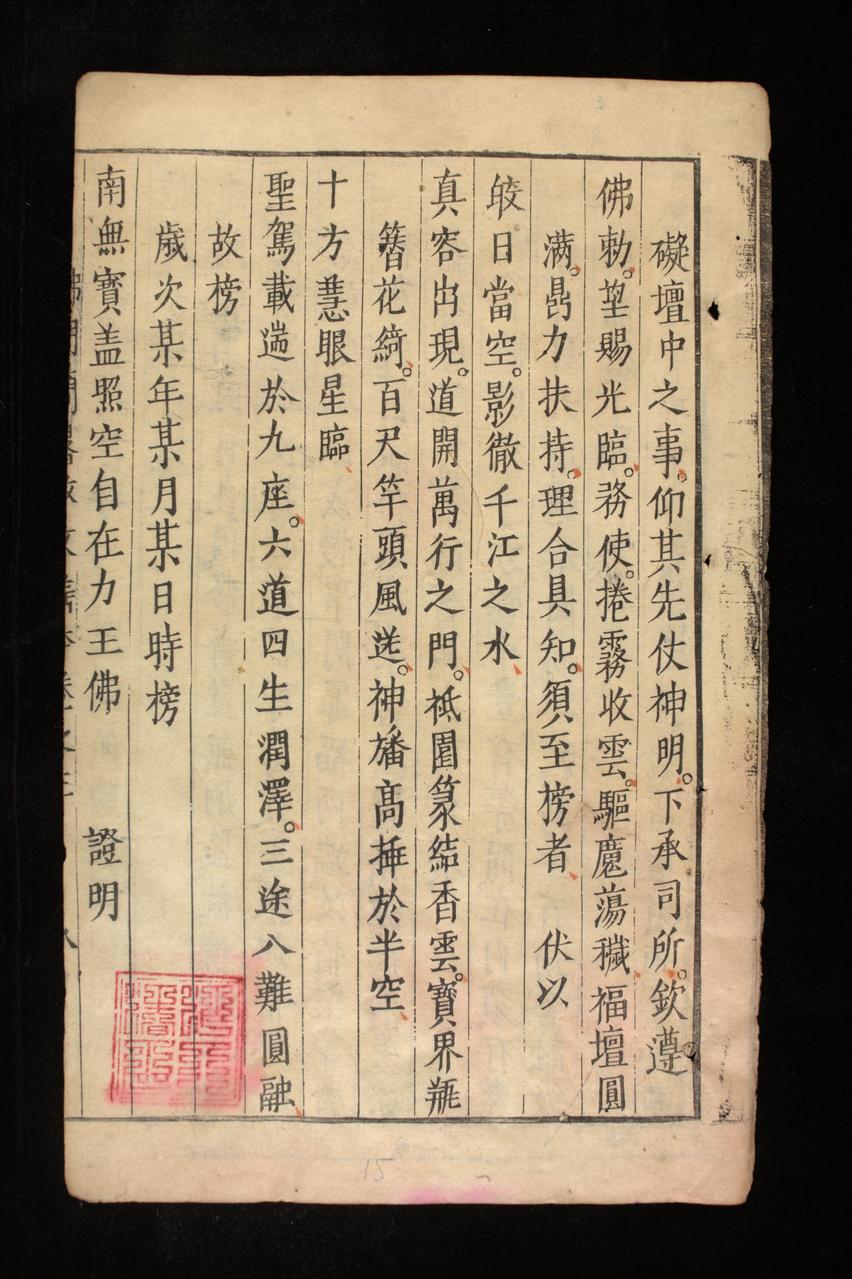 礙壇中之事。仰其先仗神明。下承司所。欽遵。
佛勅。望賜光臨。務使。捲霧收雲。驅魔蕩穢。福壇圓
滿。鼎力扶持。理合具知。須至榜者、 伏以
皎日當空。影徹千江之水、
真容出現。道開萬行之門。祗園篆結香雲。寶界甁
簪花綺。百尺竿頭風送。神旛高捶於半空、
十方慧眼星臨、
聖駕載遄於九座。六道四生潤澤。三途八難圓融、
故榜
歲次某年某月某日時榜
南無寶盖照空自在力王佛 證明
15